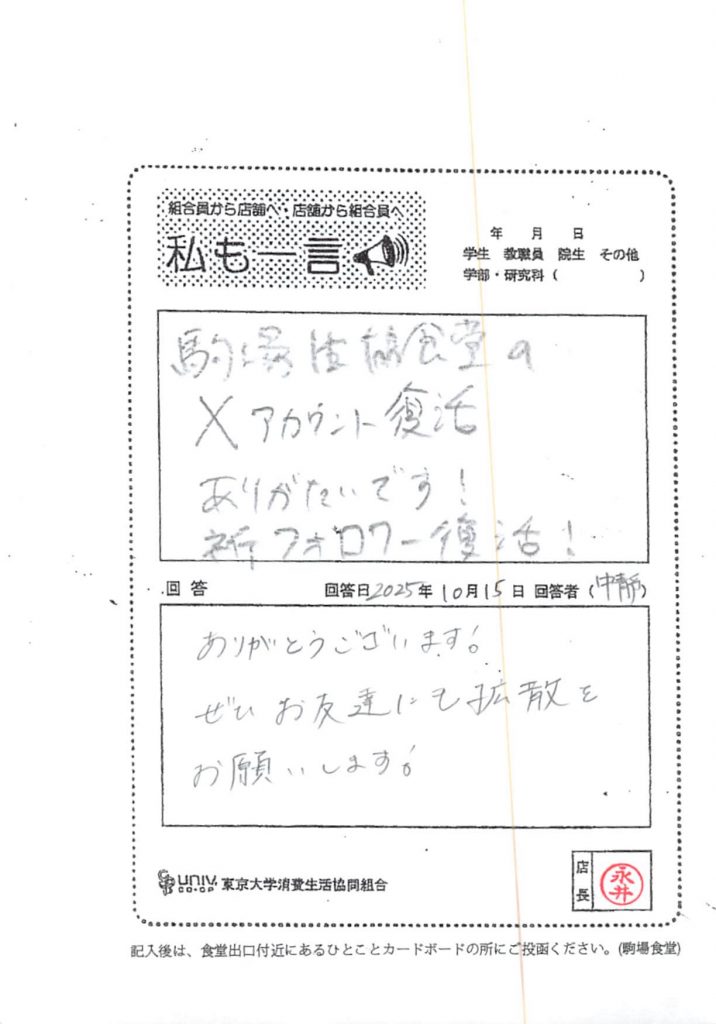 組合員から店舗へ・店舗から組合員へ
私も一言
年 月 日
学生 教職員 院生 その他
学部・研究科 ( )
駒場生協食堂の
Xアカウント復活
ありがたいです!
祈フォロワー復活!
回答 回答日2025年10月15日 回答者(中靜)
ありがとうございます!
ぜひお友達にも拡散を
お願いします!
UNIV. CO-OP 東京大学消費生活協同組合
店長 永井
記入後は、食堂出口付近にあるひとことカードボードの所にご投函ください。(駒場食堂)